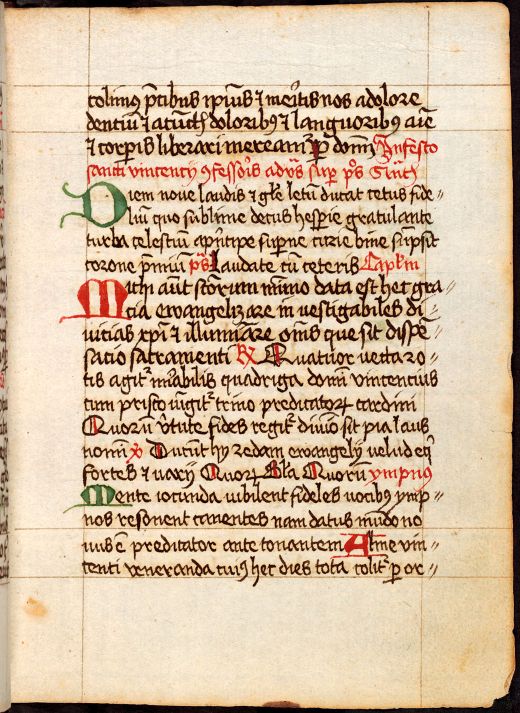 colimus p̄cibus ip̄ius ⁊ meritis nos a dolore
dentiū ⁊ a cunctꝭ doloribꝰ ⁊ languoribꝰ aīe
⁊ corp̄is liberari mereamʳ ꝑ domī In festo
sancti vincentij ꝯfessoris ad vꝰs suꝑ pꝰs
Diem nove laudis ⁊ gl̄e letū ducat cetus fide〃
liū quo sublime decus hesperie gratulante
turba celestiū a p̄ncipe suꝑne curie bine sūpsit
corone p̄miū pꝰs laudate cū ceteris Capl̄m
Michi aūt sctōrum minīo data est hec gra〃
cia evvangelizare investigabiles di〃
vicias xp̄i ⁊ illuminare om̄s que sit dispē〃
sacio sacramenti R̷ Quatuor vecta ro〃
tis agitʳ mirabilis quadriga domī vincencius
cum prisco iūgitʳ trino predicatoꝝ cardini
Quorū v̄tute fides regitʳ divīo sit pia laus
nomī v̷ Ducunt hij redam evvangelij velud eq̄
fortes ⁊ varij Quoꝝ Gl̄a Quorū ympnꝰ
Mente iocunda iubilent fideles vocibꝰ ymp〃
nos resonent canentes nam datus mūdo no
vus ē predicator ante tonantem Alme vin〃
centi veneranda cuiꝰ hec dies tota colitʳ ꝑ or〃